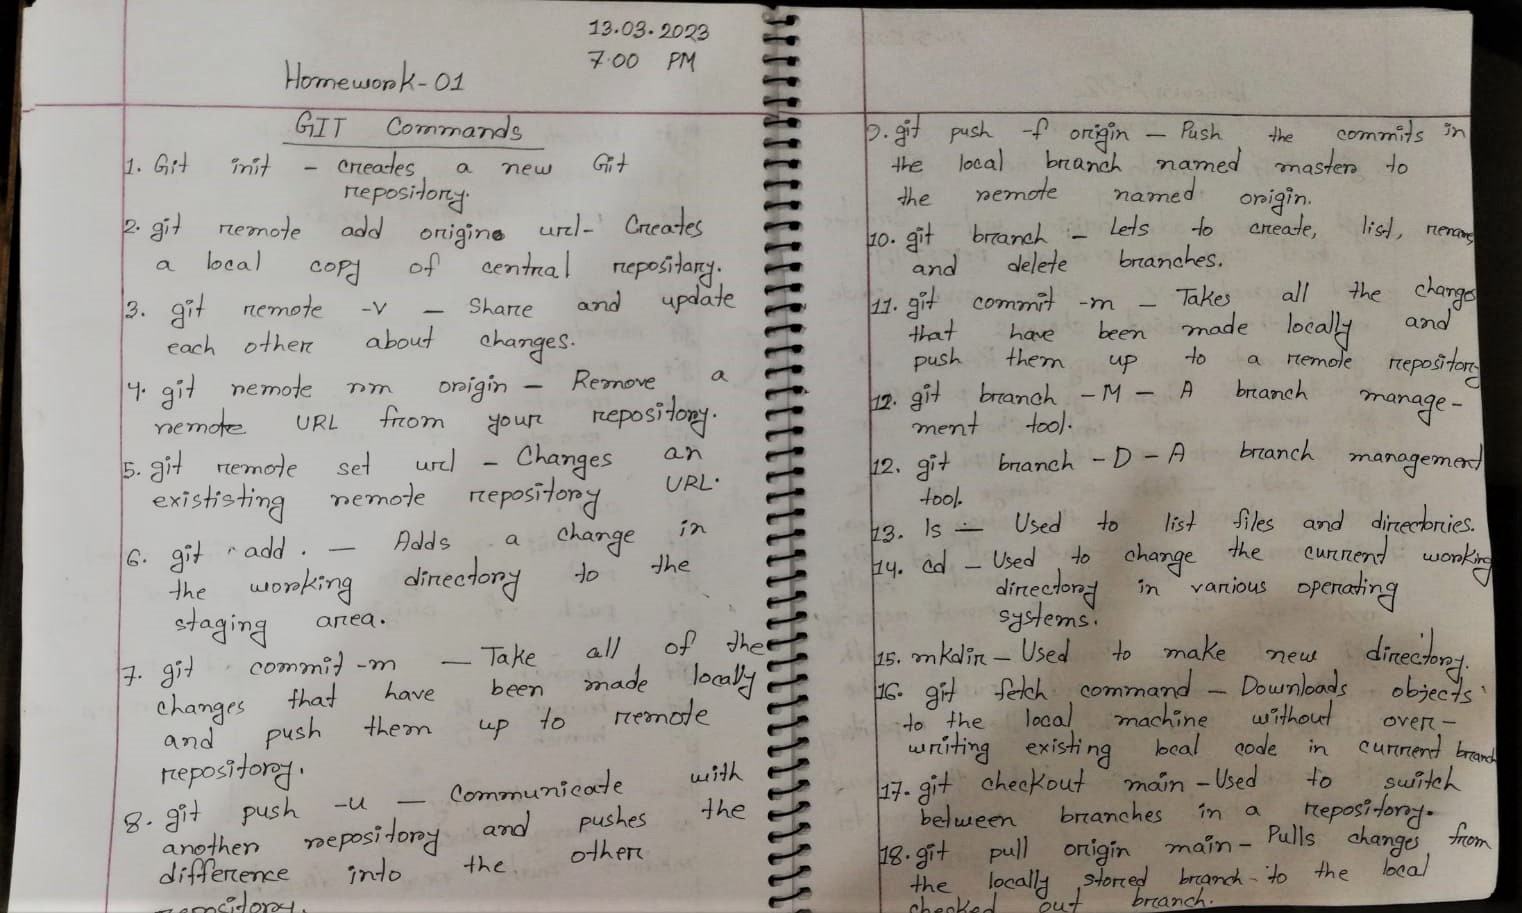 13.03.2023
7.00 PM
Homework-01
GIT Commands
1. Git init - creates a new Git
repository.
2. git remote add origin url- Creates
a local copy of central repository.
3. git remote -v - Share and update
each other about changes.
4. git remote rm origin - Remove a
remote URL from your repository.
5. git remote set url - Changes an
exististing remote repository URL.
6. git add . - Adds a change in
the working directory to the
staging area.
7. git commit -m - Take all of the
changes that have been made locally
and push them up to remote
repository.
8. git push -u - Communicate with
another repository and pushes the
difference into the other
repository.
9. git push -f origin - Push the commits in
the local branch named master to
the remote named origin.
10. git branch - Lets to create, list, rename
and delete branches.
11. git commit -m - Takes all the changes
that have been made locally and
push them up to a remote repository
12. git branch -M - A branch manage-
ment tool.
12. git branch -D - A branch management
tool.
13. ls - Used to list files and directories.
14. cd - Used to change the current working
directory in various operating
systems.
15. mkdir - Used to make new directory.
16. git fetch command - Downloads objects
to the local machine without over-
writing existing local code in current branch
17. git checkout main - Used to switch
between branches in a repository.
18. git pull origin main - Pulls changes from
the locally stored branch to the local
checked out branch.